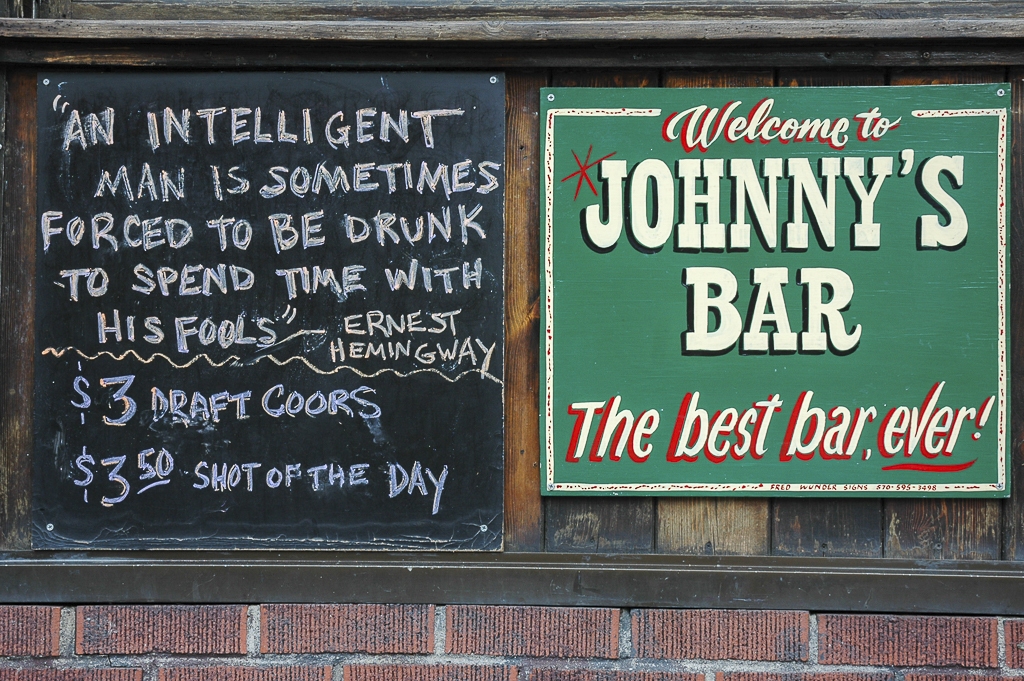 "AN INTELLIGENT
MAN IS SOMETIMES
FORCED TO BE DRUNK
TO SPEND TIME WITH
HIS FOOLS" — ERNEST
HEMINGWAY
$3 DRAFT COORS
$3.50 SHOT OF THE DAY
Welcome to
JOHNNY'S
BAR
The best bar, ever!
FRED WUNDER SIGNS 570-595-3498